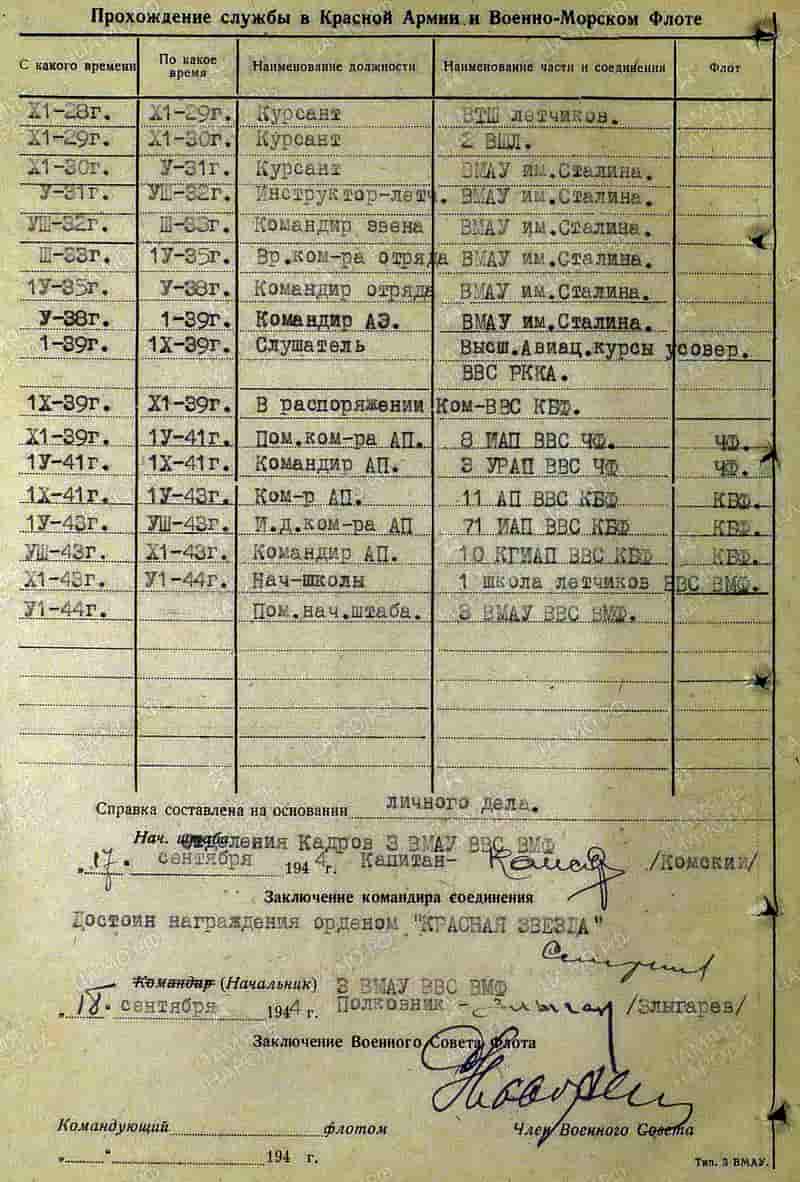 Прохождение службы в Красной Армии и Военно-Морском Флоте
С какого времени По какое время Наименование должности Наименование части и соединения Флот
Х1-28г. Х1-29г. Курсант ВТШ летчиков.
Х1-29г. Х1-30г. Курсант 2 ВШЛ.
Х1-30г. У-31г. Курсант ВМАУ им.Сталина.
У-31г. УШ-32г. Инструктор-летч. ВМАУ им.Сталина.
УШ-32г. Ш-33г. Командир звена ВМАУ им.Сталина.
Ш-33г. 1У-35г. Вр.ком-ра отряда ВМАУ им.Сталина.
1У-35г. У-38г. Командир отряда ВМАУ им.Сталина.
У-38г. 1-39г. Командир АЭ. ВМАУ им.Сталина.
1-39г. 1Х-39г. Слушатель Высш.Авиац.курсы усовер.
ВВС РККА.
1Х-39г. Х1-39г. В распоряжении Ком-ВВС КБФ.
Х1-39г. 1У-41г. Пом.ком-ра АП. 8 ИАП ВВС ЧФ. ЧФ.
1У-41г. 1Х-41г. Командир АП. 3 УРАП ВВС ЧФ ЧФ.
1Х-41г. 1У-43г. Ком-р АП. 11 АП ВВС КБФ КБФ.
1У-43г. УШ-43г. И.д.ком-ра АП 71 ИАП ВВС КБФ КБФ.
УШ-43г. Х1-43г. Командир АП. 10 КГИАП ВВС КБФ КБФ.
Х1-43г. У1-44г. Нач-школы 1 школа летчиков ВВС ВМФ.
У1-44г. Пом.нач.штаба. 3 ВМАУ ВВС ВМФ.
Справка составлена на основании личного дела.
Нач. отделения Кадров 3 ВМАУ ВВС ВМФ
„17“ сентября 1944г. Капитан- /Комский/
Заключение командира соединения
Достоин награждения орденом "КРАСНАЯ ЗВЕЗДА"
Командир (Начальник) 3 ВМАУ ВВС ВМФ
„18“ сентября 1944 г. Полковник - /Злыгарев/
Заключение Военного Совета флота
Командующий флотом Член Военного Совета
„ “ 194 г.
Тип. 3 ВМАУ.